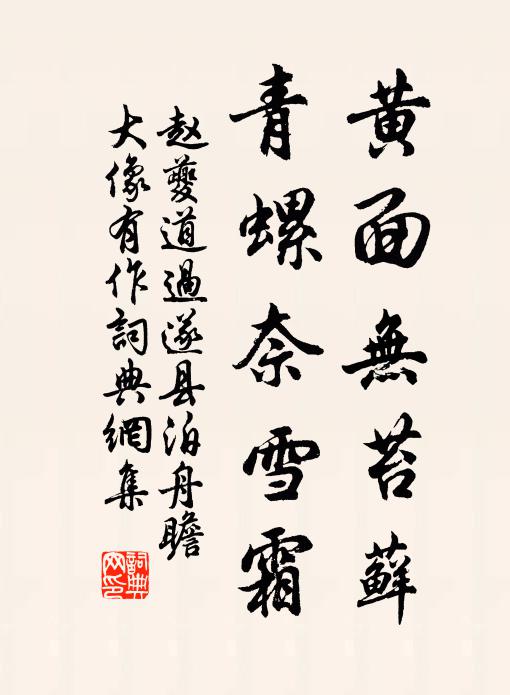 黄面無苔蘚
青螺奈雪霜
赵夔道過遂县泊舟瞻
大像有作詞典網集
詞典
网印